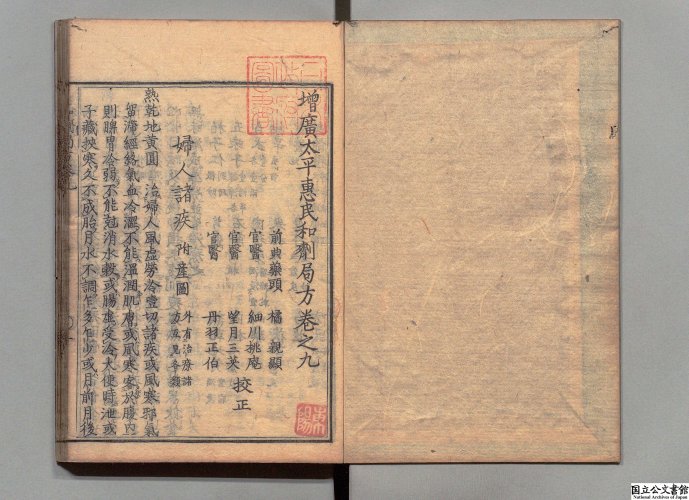 增廣太平惠民和劑局方卷之九
前典藥頭 橘 親顯
官醫 細川桃庵
官醫 望月三英
官醫 丹羽正伯
校正
婦人諸疾 附產圖 外有治療諸方互見各類
熟乾地黃圓 治婦人風虛勞冷一切諸疾或風寒邪氣
留滯經絡氣血冷澀不能溫潤肌膚或風寒客於腹內
則脾胃冷弱不能剋消水穀或腸虛受冷大便時泄或
子藏挾寒久不成胎月水不調乍多乍少或月前月後
東陽
国立公文書館
National Archives of Japan